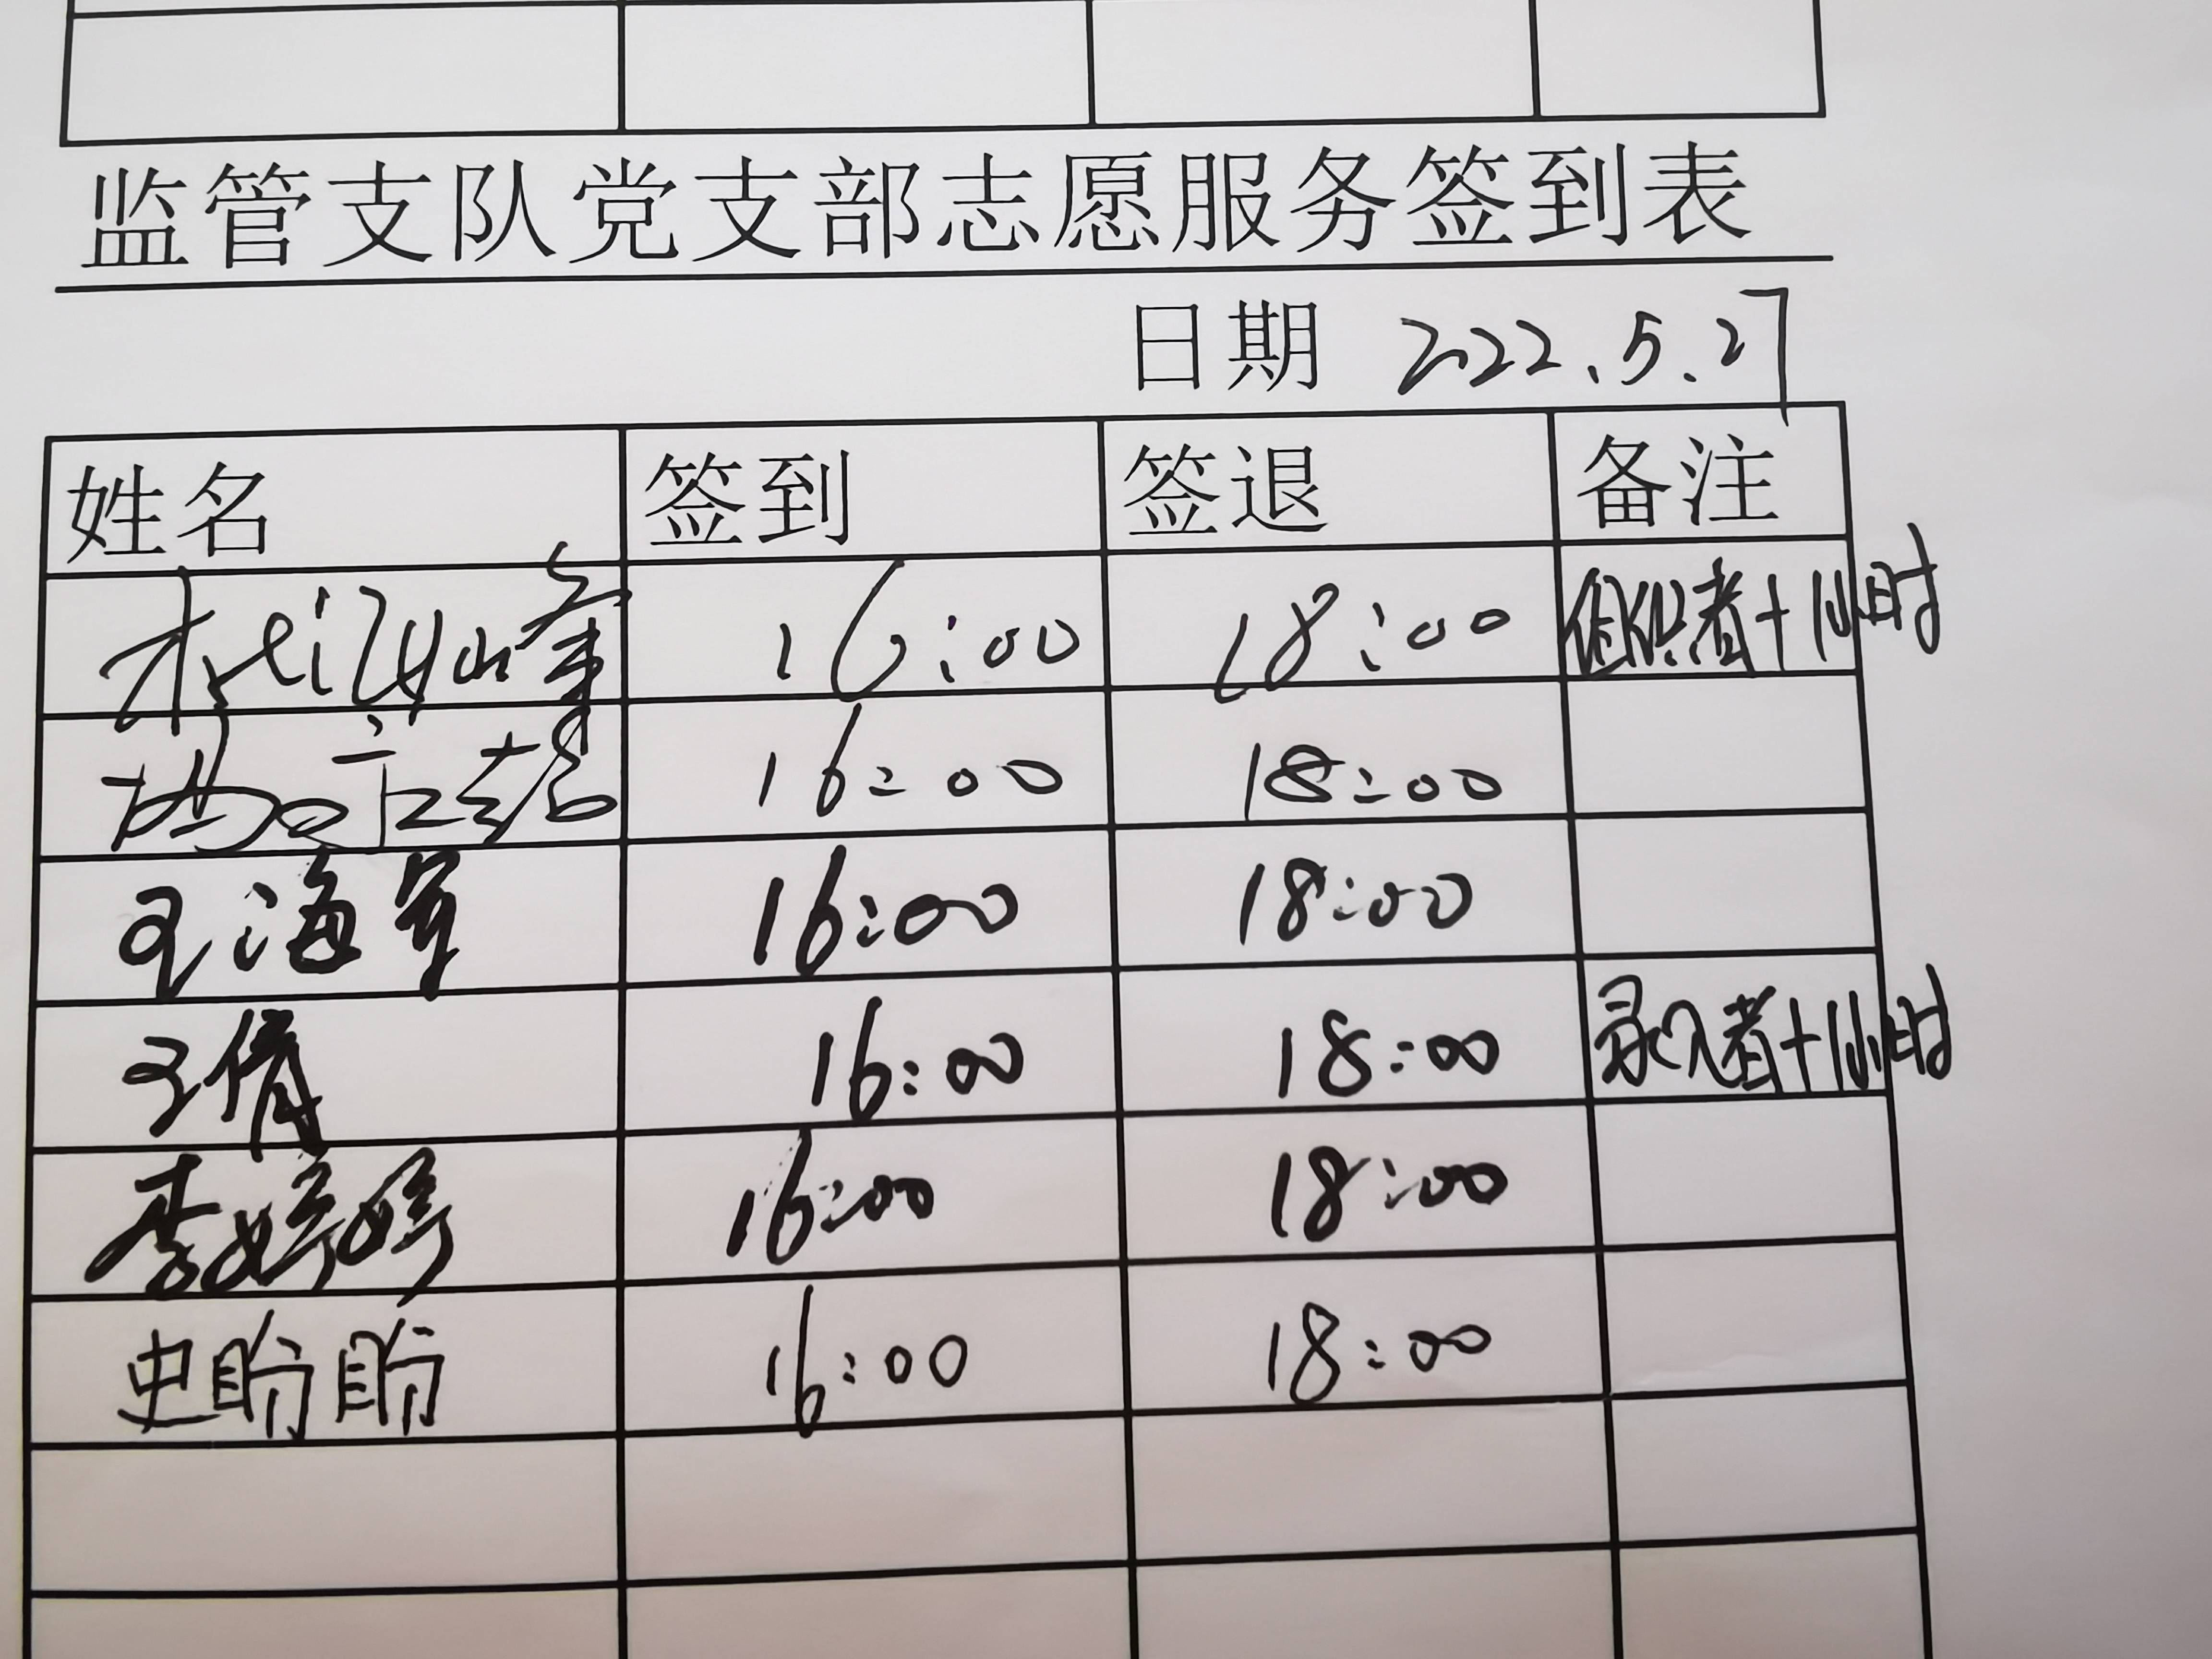 监管支队党支部志愿服务签到表
日期 2022.5.27
姓名 签到 签退 备注
16:00 18:00 组织者+1小时
16:00 18:00
王海军 16:00 18:00
王倩 16:00 18:00 录入者+1小时
李婷婷 16:00 18:00
史盼盼 16:00 18:00